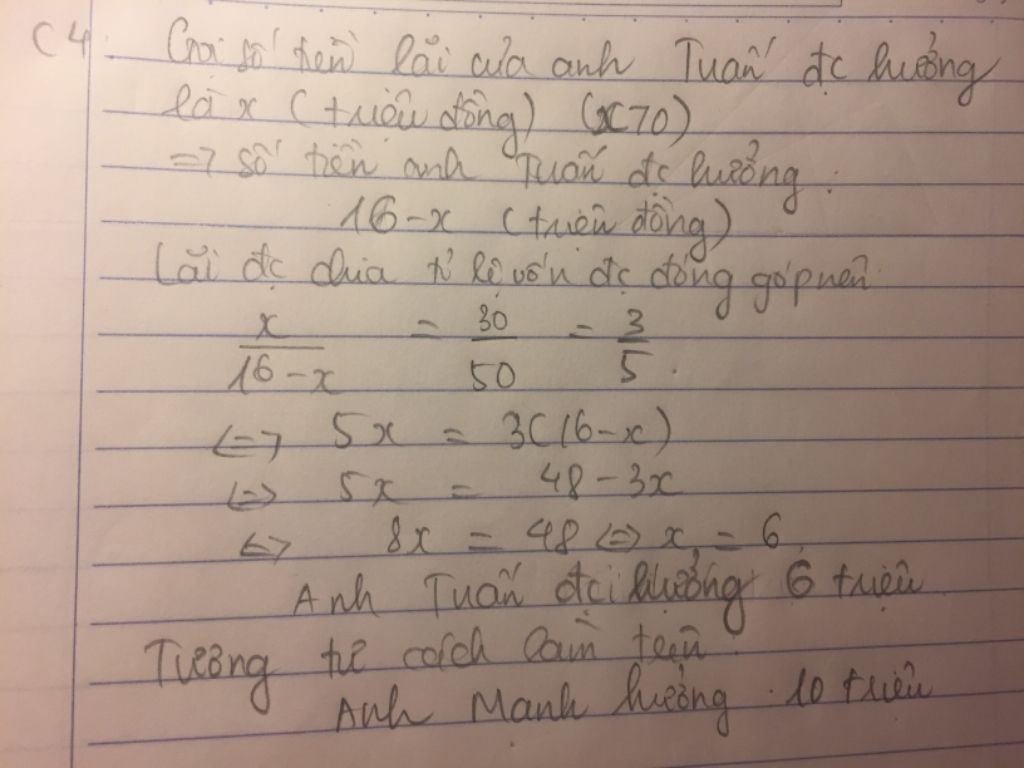 C4 Gọi số tiền lãi của anh Tuấn đc hưởng
là x (triệu đồng) (x>0)
=> số tiền anh Tuấn đc hưởng:
16-x (triệu đồng)
Lãi đc chia tỉ lệ vốn đc đóng góp nên
x/(16-x) = 30/50 = 3/5.
<=> 5x = 3(16-x)
<=> 5x = 48-3x
<=> 8x = 48 <=> x = 6
Anh Tuấn đc hưởng 6 triệu
Tương tự cách làm trên
Anh Mạnh hưởng 10 triệu